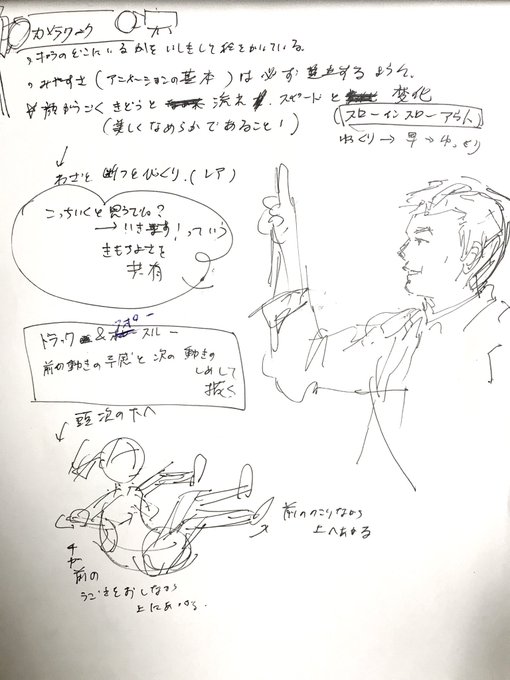 カメラワーク
カメラのどこにいるかをいしきして絵をかいている。
みやすさ(アニメーションの基本)は必ず
顔がうごくきどうと 流れ スピードと 変化
(美しくなめらかであること!)
(スローインスローアウト)
ゆっくり→早→ゆっくり
わざと断つとびっくり.(レア)
こっちいくと思うでしょ?
→いきます!っていう
きもちよさを
共有
トラック & フォロースルー
前の動きの 次の動きの
しめして
描く
頭次の方へ
前のこりながら
上へあがる
前の
うごきをおしながら
上にあがる.